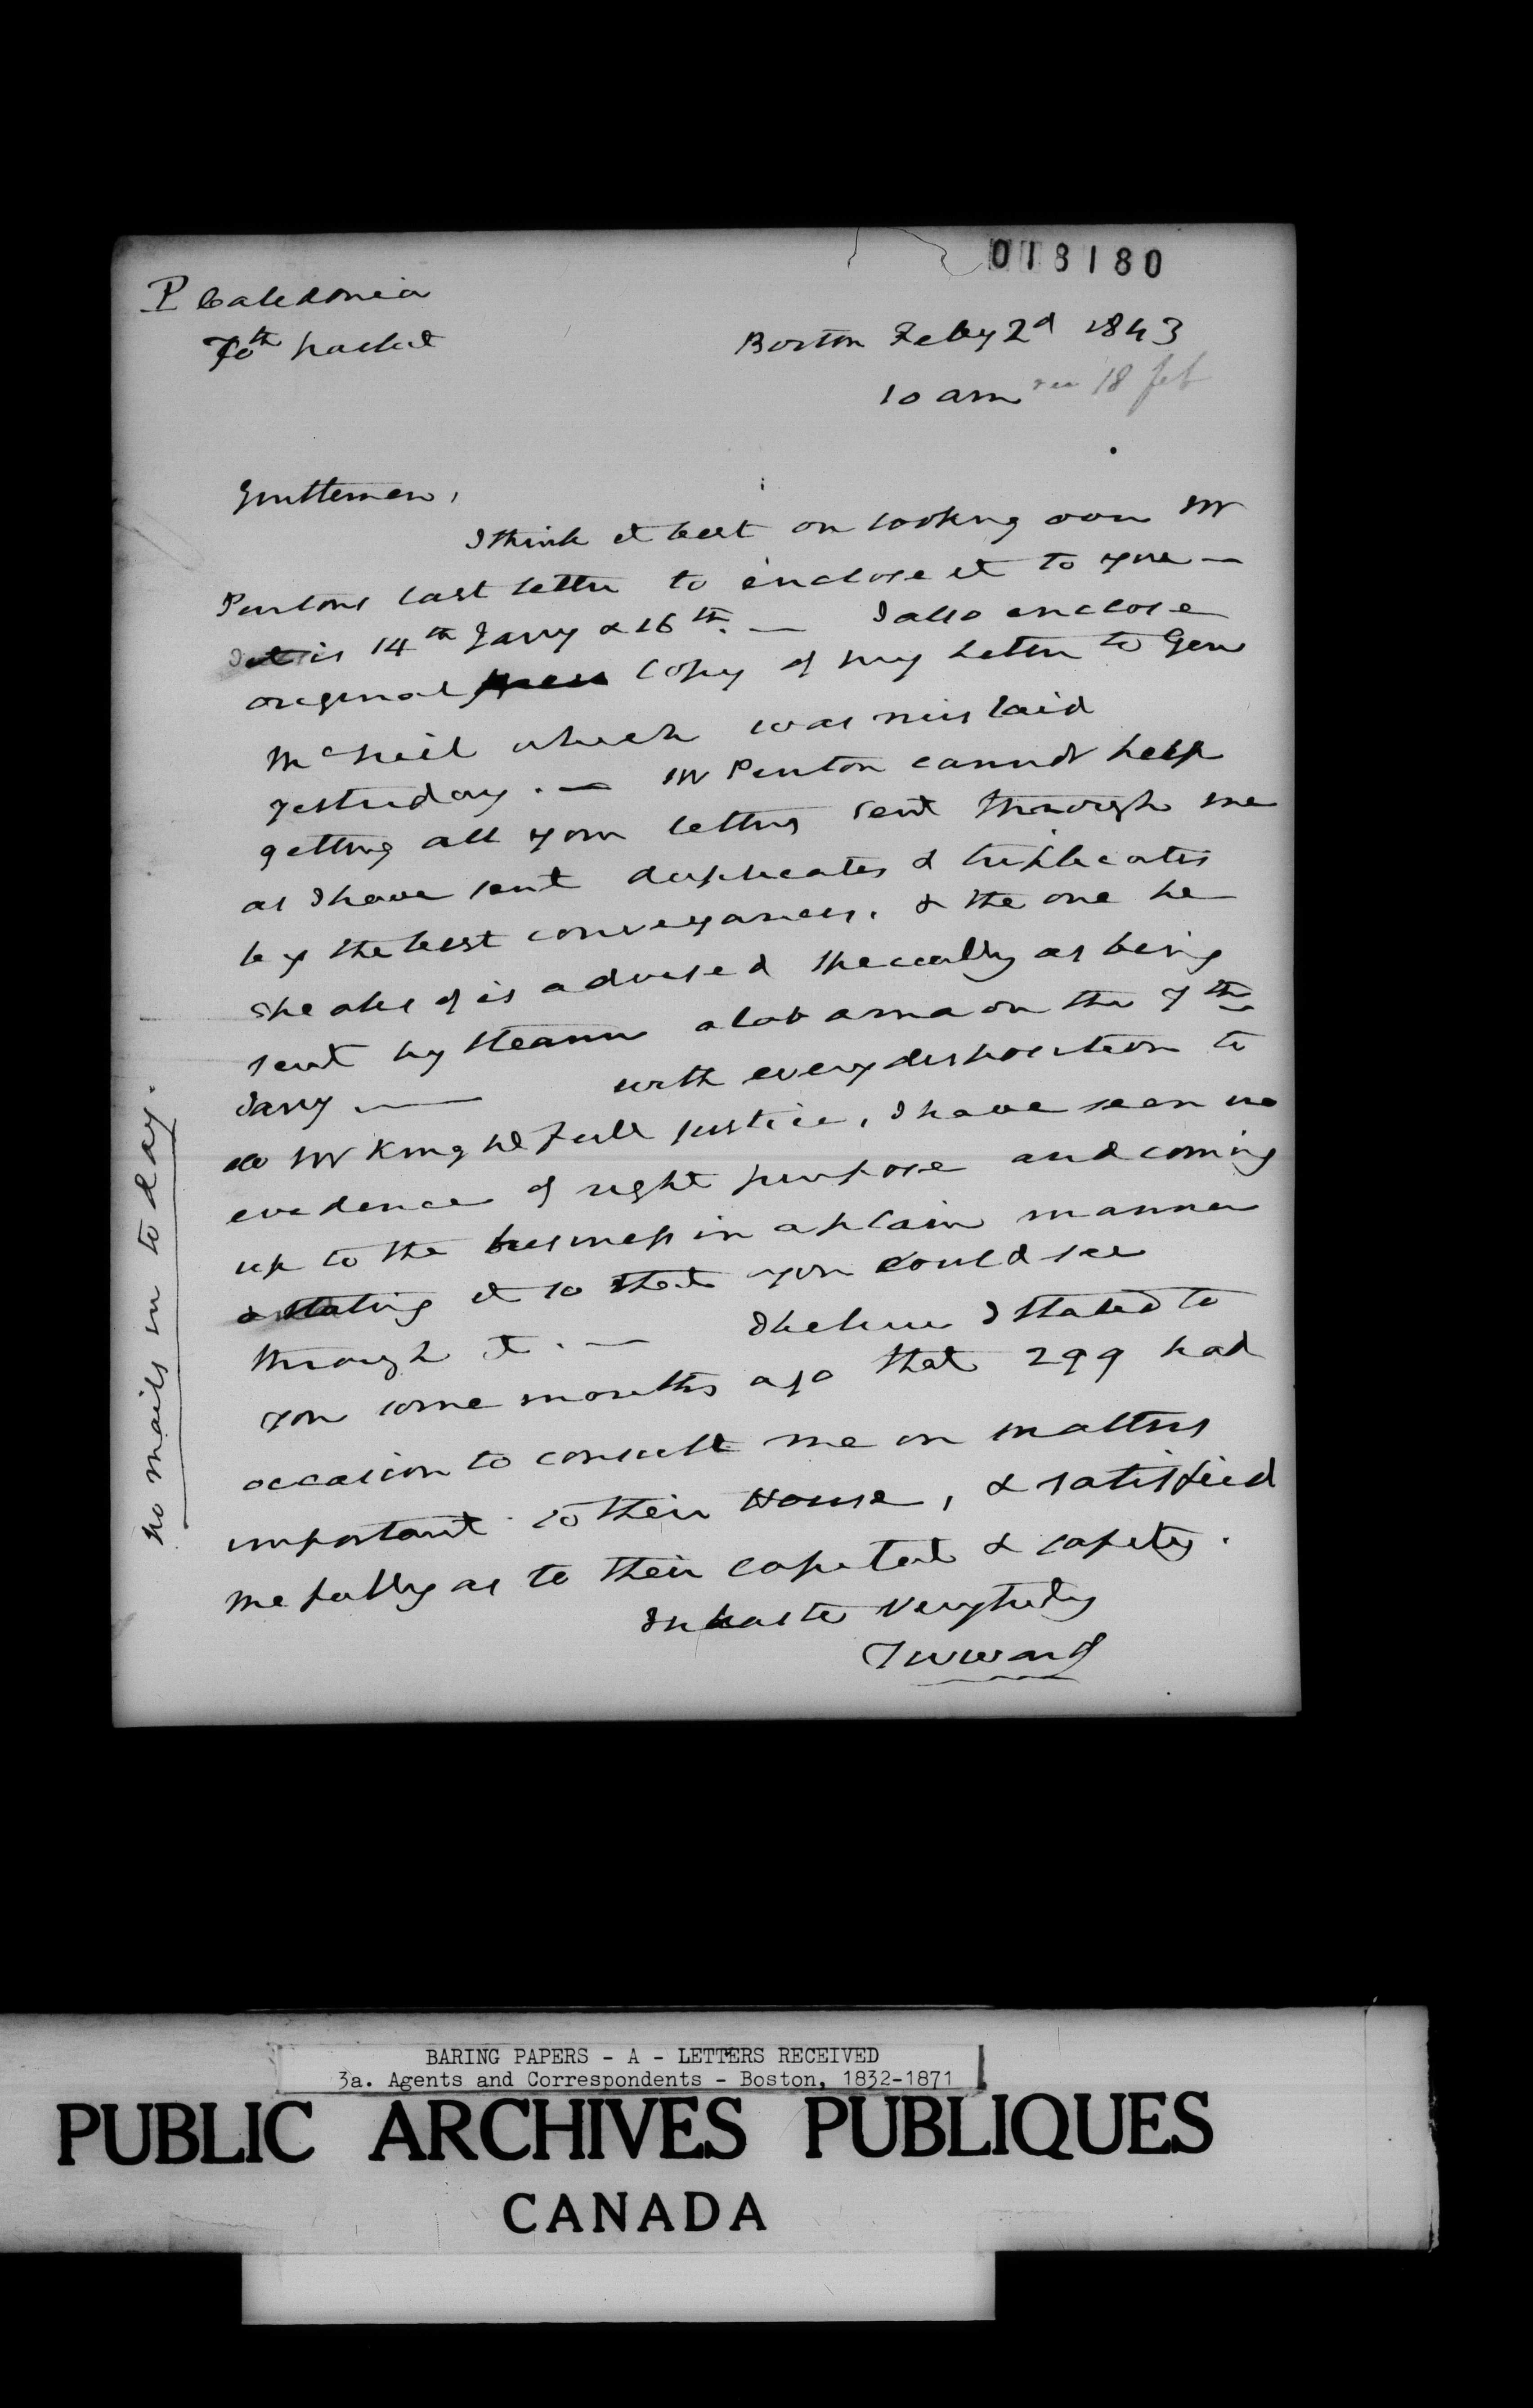 018180
P Caledonia
70th packet
Boston Feby 2d 1843
10 am rec 18 feb
Gentlemen,
I think it best on looking over Mr
Pentons last letter to enclose it to you —
it is 14th Jany & 16th. — I also enclose
original copy of my letter to Gen
McNeil which was mislaid
yesterday. — Mr Penton cannot help
getting all your letters sent through me
as I have sent duplicates & triplicates
by the best conveyances. & the one he
speaks of is advised specially as being
sent by steam alabama on the 7th
Jany — with every disposition to
do Mr King he full justice, I have seen no
evidence of right purpose and coming
up to the business in a plain manner
& stating it so that you could see
through it. — I believe I stated to
you some months ago that 299 had
occasion to consult me on matters
important to their House, & satisfied
me fully as to their capital & safety.
In haste very truly
TWWard
no mails in to day.
BARING PAPERS - A - LETTERS RECEIVED
3a. Agents and Correspondents - Boston, 1832-1871
PUBLIC ARCHIVES PUBLIQUES
CANADA